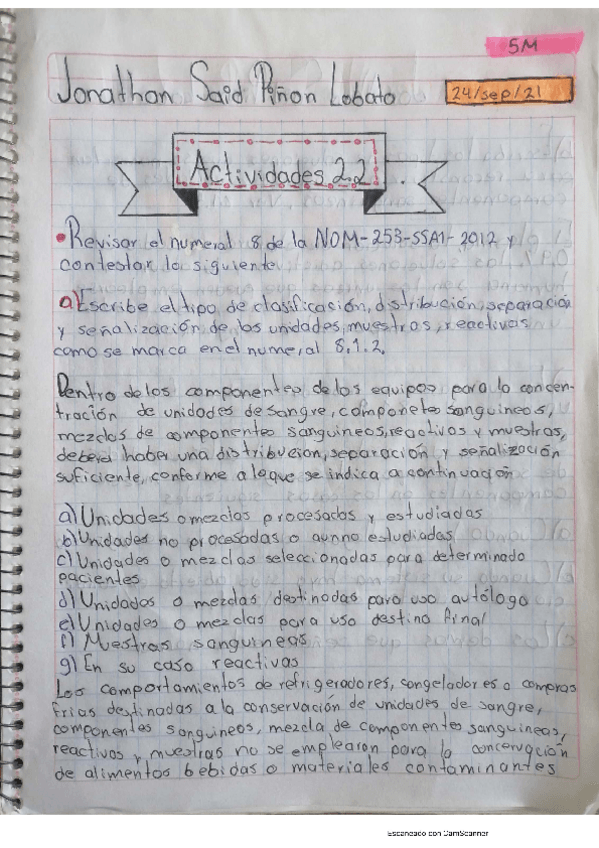 5M
Jonathan Said Piñon Lobato
24/sep/21
Actividades 2.2
• Revisar el numeral 8 de la NOM-253-SSA1-2012 y
contestar lo siguiente
a) Escribe el tipo de clasificación, distribución, separación
y señalización de los unidades, muestras, reactivos
como se marca en el numeral 8.1.2.
Dentro de los componentes de los equipos para la concen-
tración de unidades de sangre, componetes sanguineos,
mezclas de componentes sanguineos, reactivos y muestras,
debera haber una distribucion, separación y señalización
suficiente, conforme a loque se indica a continuación
a) Unidades o mezclas procesadas y estudiadas
b) Unidades no procesadas o aunno estudiadas
c) Unidades o mezclas seleccionadas para determinado
pacientes
d) Unidades o mezclas destinadas para uso autólogo
e) Unidades o mezclas para uso destino final
f) Muestras sanguineas
g) En su caso reactivos
Los comportamientos de refrigeradores, congeladores o
frias destinadas a la conservación de unidades de sangre,
componentes sanguineos, mezcla de componentes sanguineas,
reactivos y muestras no se emplearon para la concervación
de alimentos bebidas o materiales contaminantes
Escaneado con CamScanner